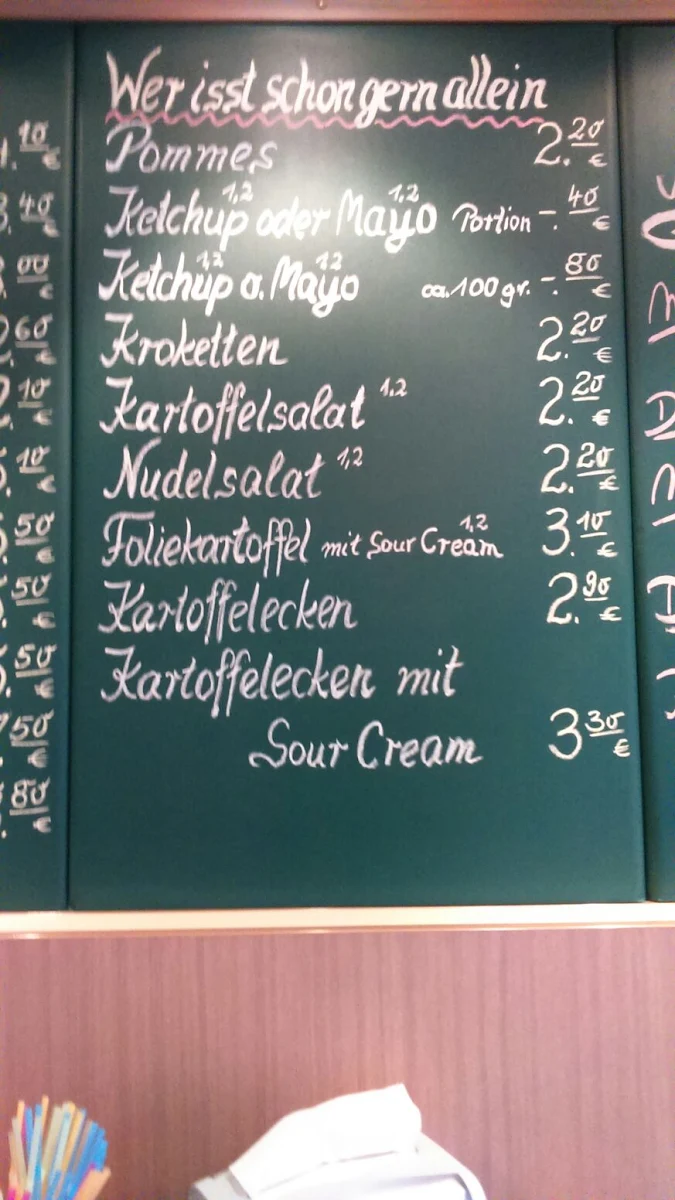 Wer isst schon gern allein
Pommes 2.20 €
Ketchup 1,2 oder Mayo 1,2 Portion -.40 €
Ketchup 1,2 o. Mayo 1,2 ca. 100 gr. -.80 €
Kroketten 2.20 €
Kartoffelsalat 1,2 2.20 €
Nudelsalat 1,2 2.20 €
Foliekartoffel mit Sour Cream 1,2 3.10 €
Kartoffelecken 2.90 €
Kartoffelecken mit
Sour Cream 3 30 €
10 €
40 €
00 €
60 €
10 €
10 €
50 €
50 €
50 €
50 €
80 €